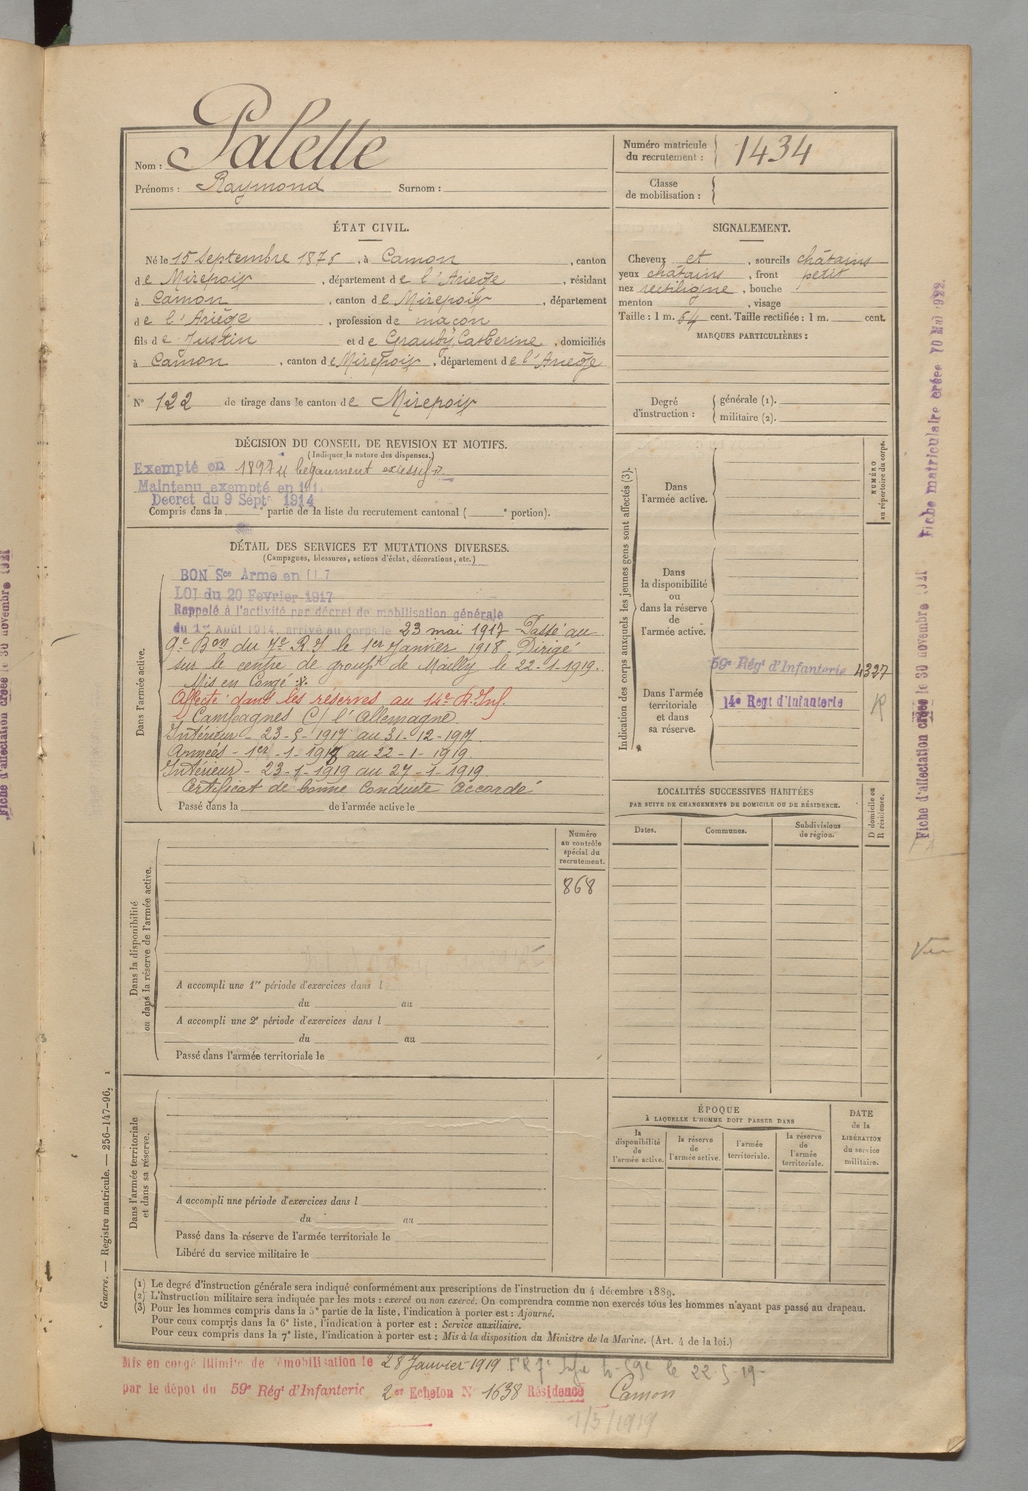 Nom : Palette
Prénoms : Raymond Surnom :
Numéro matricule du recrutement : 1434
Classe de mobilisation :
ÉTAT CIVIL.
Né le 15 Septembre 1876, à Camon, canton
de Mirepoix, département de l'Ariège, résidant
à Camon, canton de Mirepoix, département
de l'Ariège, profession de maçon
fils de Justin et de Grauby Catherine, domiciliés
à Camon, canton de Mirepoix, département de l'Ariège
N° 122 de tirage dans le canton de Mirepoix
SIGNALEMENT.
Cheveux et, sourcils châtains
yeux châtains, front petit
nez rectiligne, bouche
menton, visage
Taille : 1 m. 54 cent. Taille rectifiée : 1 m. cent.
MARQUES PARTICULIÈRES :
Degré d'instruction : générale (1).
militaire (2).
DÉCISION DU CONSEIL DE REVISION ET MOTIFS.
(Indiquer la nature des dispenses.)
Exempté en 1897 begaiement excessif
Maintenu exempté en 191
Décret du 9 Sept. 1914
Compris dans la partie de la liste du recrutement cantonal ( ° portion).
DÉTAIL DES SERVICES ET MUTATIONS DIVERSES.
(Campagnes, blessures, actions d'éclat, décorations, etc.)
Dans l'armée active.
BON Sce Armé en 17
LOI du 20 Février 1917
Rappelé à l'activité par décret de mobilisation générale
du 1er Août 1914, arrivé au corps le 23 mai 1917 Passé au
9e Bon du 7e R I le 1er Janvier 1918. Dirigé
sur le centre de groupt de Mailly le 22-1-1919.
Mis en Congé
Affecté dans les réserves au 14e R. Inf.
Campagnes C/ l'Allemagne
Intérieur - 23-5-1917 au 31-12-1917
Armées - 1er -1-1918 au 22-1-1919
Intérieur - 23-1-1919 au 27-1-1919
Certificat de bonne conduite Accordé
Passé dans la de l'armée active le
Indication des corps auxquels les jeunes gens sont affectés (3).
NUMÉRO au répertoire du corps.
Dans l'armée active.
Dans la disponibilité ou dans la réserve de l'armée active.
Dans l'armée territoriale et dans sa réserve.
59e Régt d'Infanterie 4327
14e Regt d'Infanterie R
LOCALITÉS SUCCESSIVES HABITÉES
PAR SUITE DE CHANGEMENTS DE DOMICILE OU DE RÉSIDENCE.
D domicile ou R résidence.
Dates. Communes. Subdivisions de région.
Dans la disponibilité ou dans la réserve de l'armée active.
Numéro au contrôle spécial du recrutement.
868
A accompli une 1re période d'exercices dans l
du au
A accompli une 2e période d'exercices dans l
du au
Passé dans l'armée territoriale le
Dans l'armée territoriale et dans sa réserve.
A accompli une période d'exercices dans l
du au
Passé dans la réserve de l'armée territoriale le
Libéré du service militaire le
ÉPOQUE
À LAQUELLE L'HOMME DOIT PASSER DANS
la disponibilité de l'armée active.
la réserve de l'armée active.
l'armée territoriale.
la réserve de l'armée territoriale.
DATE de la LIBÉRATION du service militaire.
(1) Le degré d'instruction générale sera indiqué conformément aux prescriptions de l'instruction du 4 décembre 1889.
(2) L'instruction militaire sera indiquée par les mots : exercé ou non exercé. On comprendra comme non exercés tous les hommes n'ayant pas passé au drapeau.
(3) Pour les hommes compris dans la 5e partie de la liste, l'indication à porter est : Ajourné.
Pour ceux compris dans la 6e liste, l'indication à porter est : Service auxiliaire.
Pour ceux compris dans la 7e liste, l'indication à porter est : Mis à la disposition du Ministre de la Marine. (Art. 4 de la loi.)
Mis en congé illimité de démobilisation le 28 Janvier 1919
par le dépot du 59e Régt d'Infanterie 2er Echelon N° 1638 Résidence Camon
1/3/1919
Guerre. — Registre matricule. — 256-147-96.
Fiche d'affectation créée le 30 novembre 1921
Fiche matriculaire créée 10 Mai 1922
Fiche d'affectation créée le 30 novembre 1921